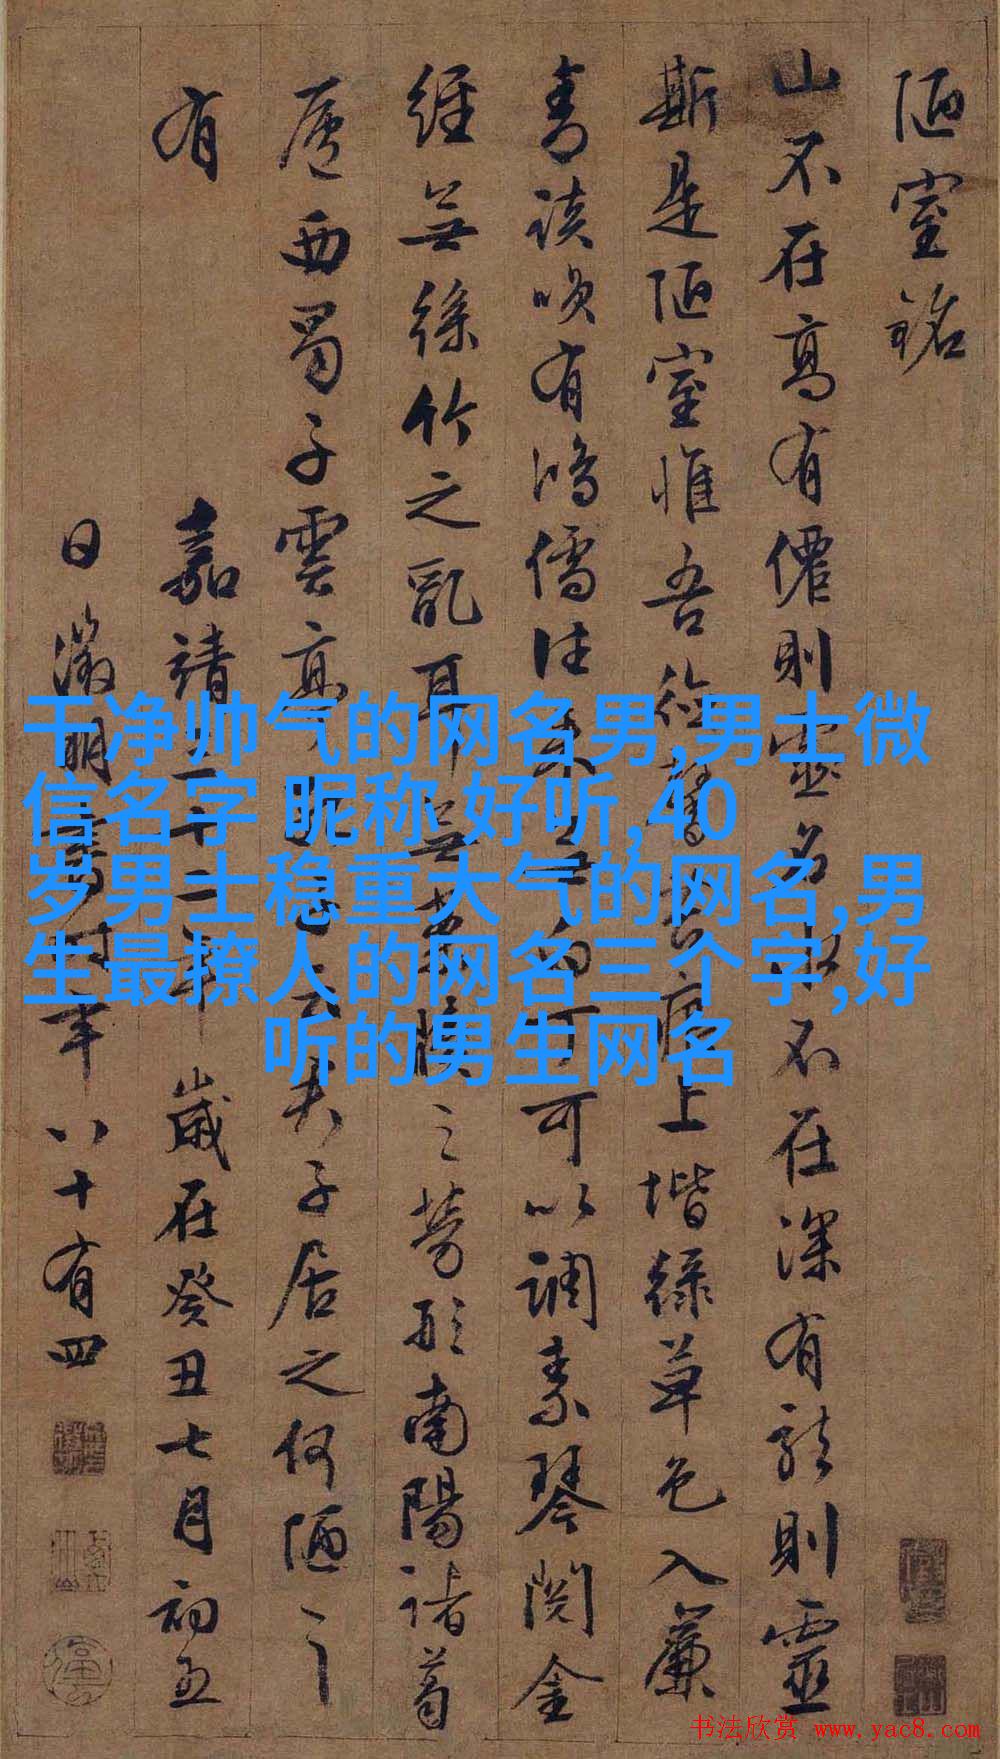 陋室銘
山不在高有僊則靈名水不在深有龍則靈
斯是陋室惟吾德馨苔痕上堦綠草色入簾
青談咲有鴻儒往来無白丁可以調素琴閱金
經無絲竹之亂耳無案牘之勞形南陽諸葛
廬西蜀子雲亭子居之何陋之
有
嘉靖三十二年歲在癸丑七月初五
日徵明書時年八十有四
干净帅气的网名男,男士微
信名字 昵称 好听,40
岁男士稳重大气的网名,男
生最撩人的网名三个字,好
听的男生网名
书法欣赏 www.yac8.com